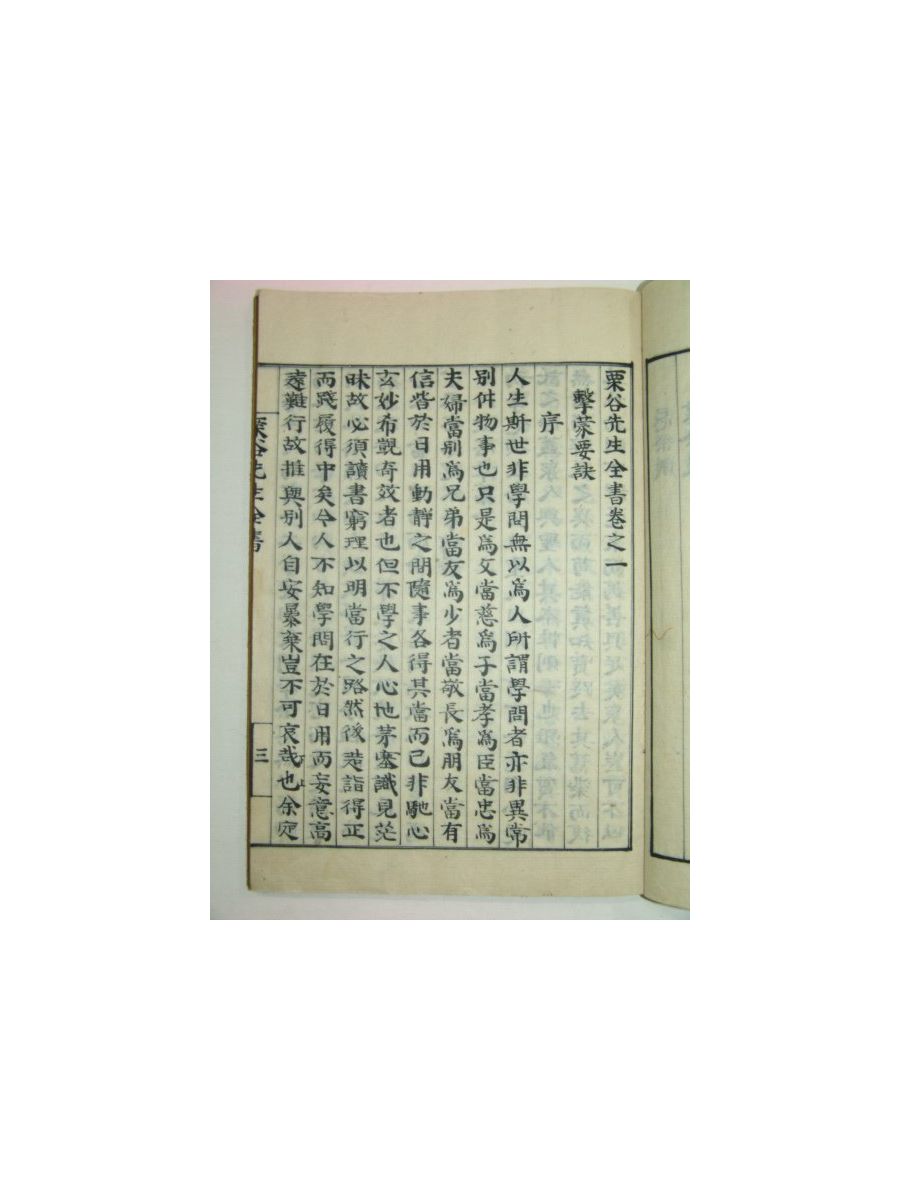 栗谷先生全書卷之一
擊蒙要訣
序
人生斯世非學問無以爲人所謂學問者亦非異常
別件物事也只是爲父當慈爲子當孝爲臣當忠爲
夫婦當別爲兄弟當友爲少者當敬長爲朋友當有
信皆於日用動靜之間隨事各得其當而已非馳心
玄妙希覬奇效者也但不學之人心地茅塞識見茫
昧故必須讀書窮理以明當行之路然後造詣得正
而踐履得中矣今人不知學問在於日用而妄意高
遠難行故推與別人自安暴棄豈不可哀哉也余定
栗谷先生全書
三